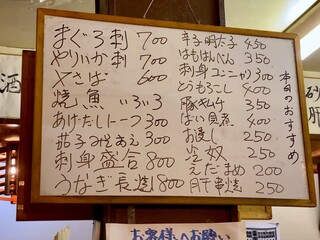 本日のおすすめ
まぐろ刺 700
やりいか刺 700
〆さば 600
焼魚 いろいろ
あげだしとーふ 300
茄子みそあえ 300
刺身盛合 800
うなぎ長焼 800
辛子明太子 450
はもはんぺん 350
刺身コンニャク 300
とうもろこし 400
豚キムチ 400
ばい貝煮 400
お浸し 250
冷奴 250
えだまめ 200
肝串焼 250
酒
砂肝
お客様へお願い